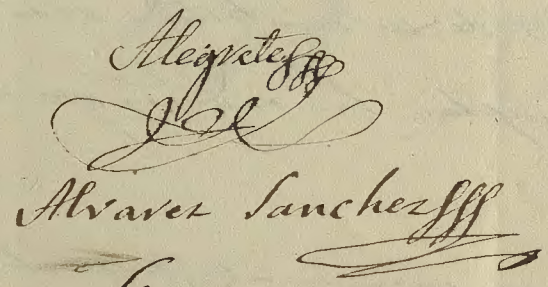 Alegrete
Alvarez Sanchez